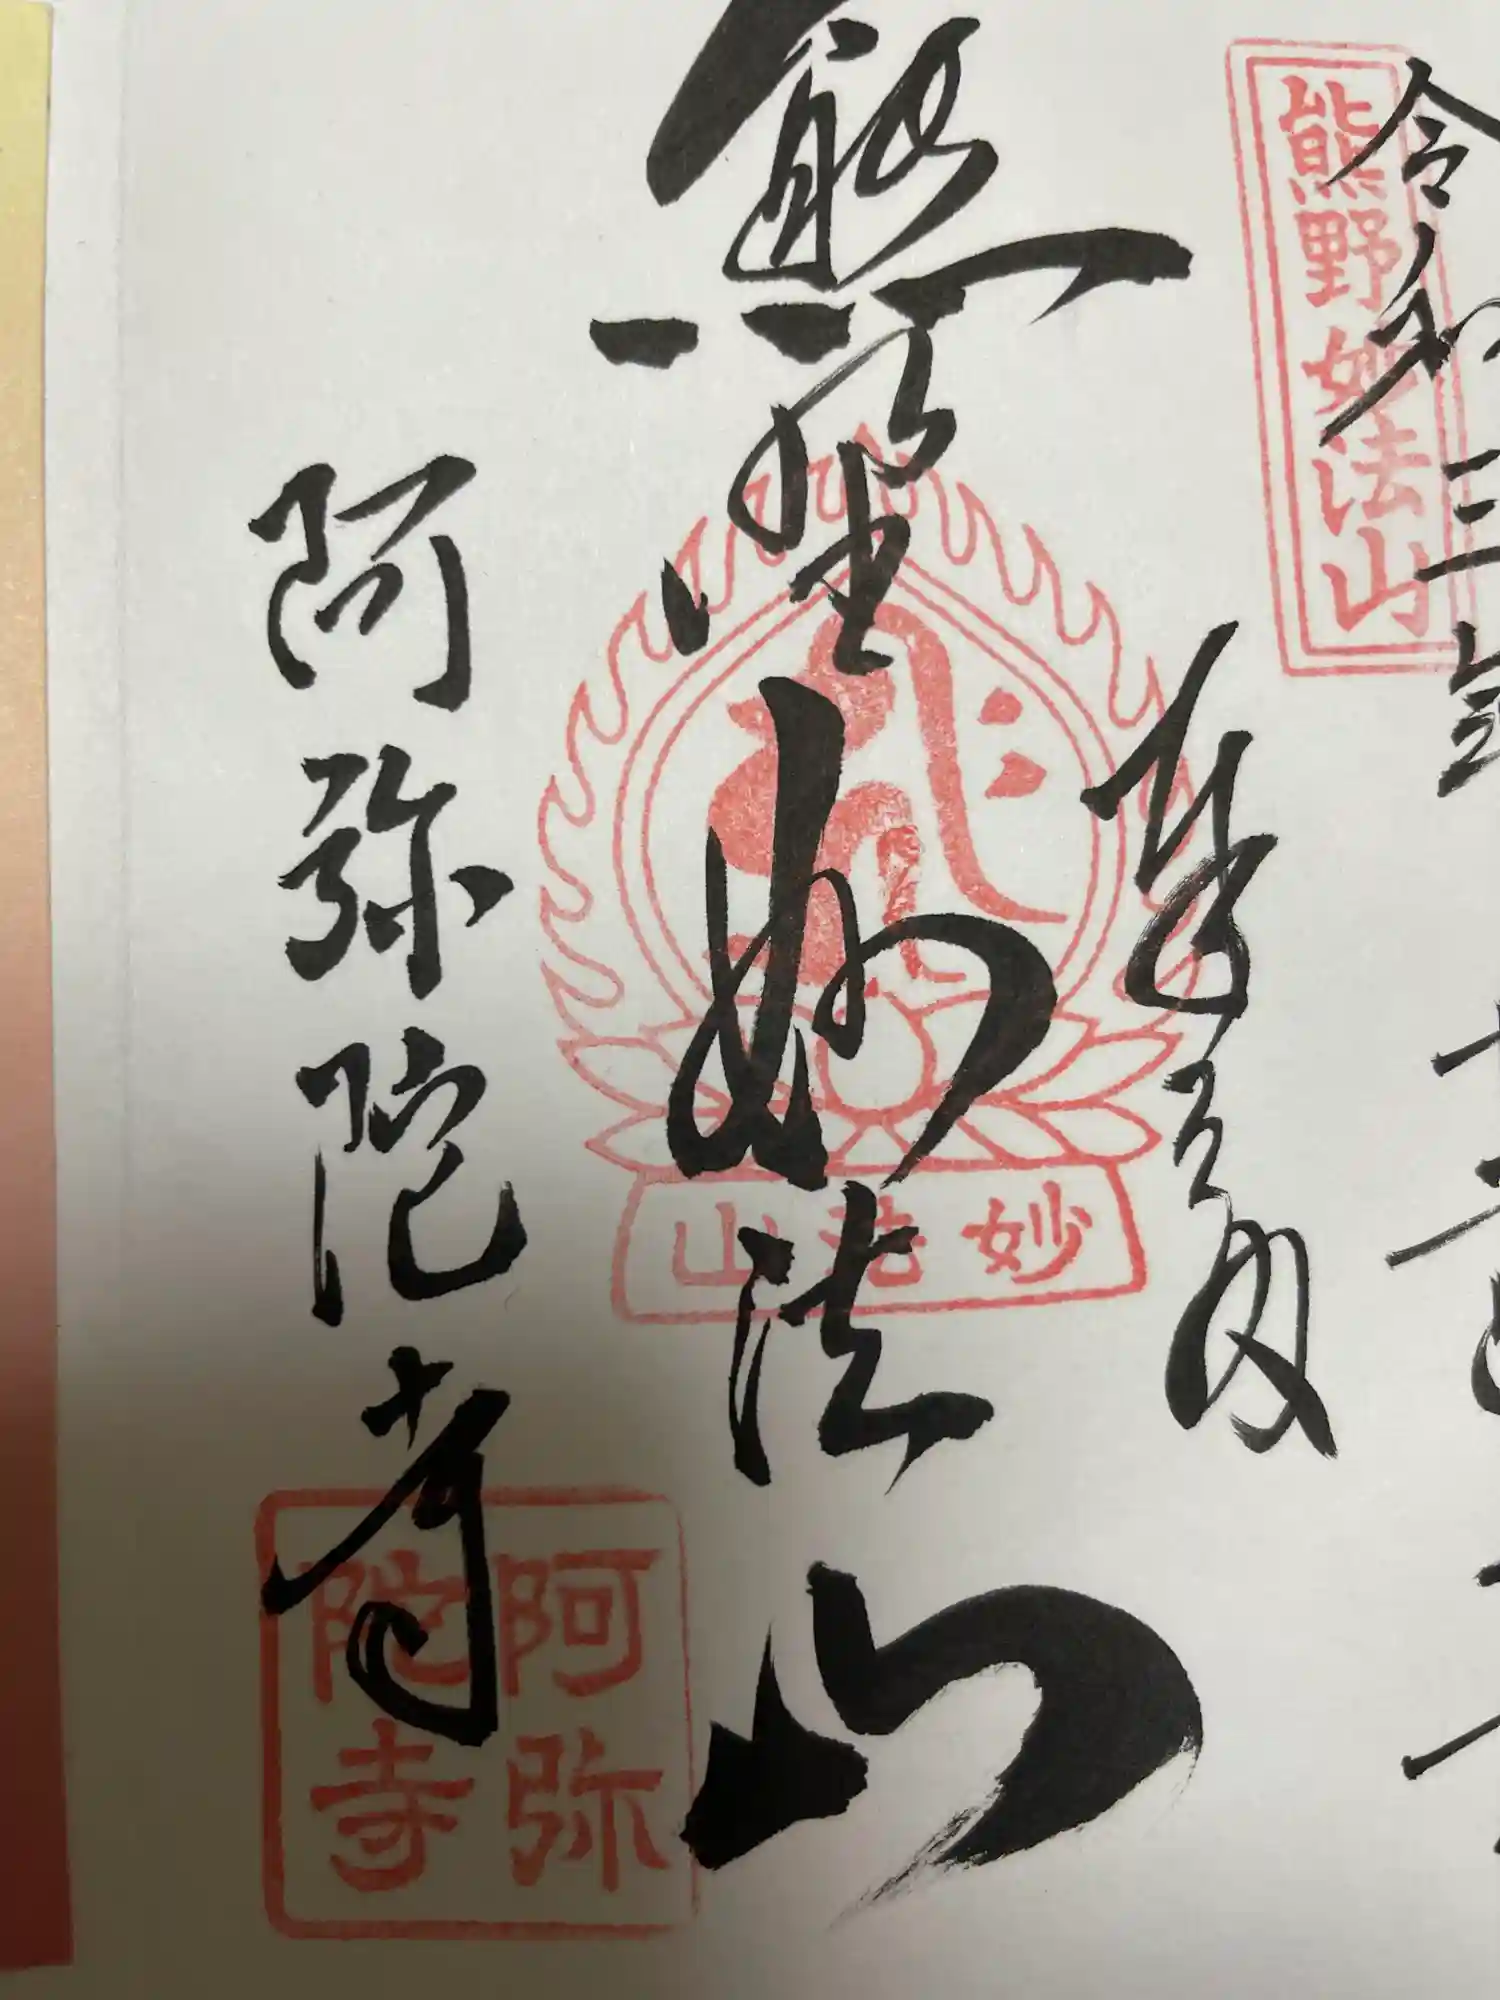 熊野妙法山
令和三年
十二月
奉拝
熊野妙法山
妙法山
阿弥陀寺
阿弥陀寺